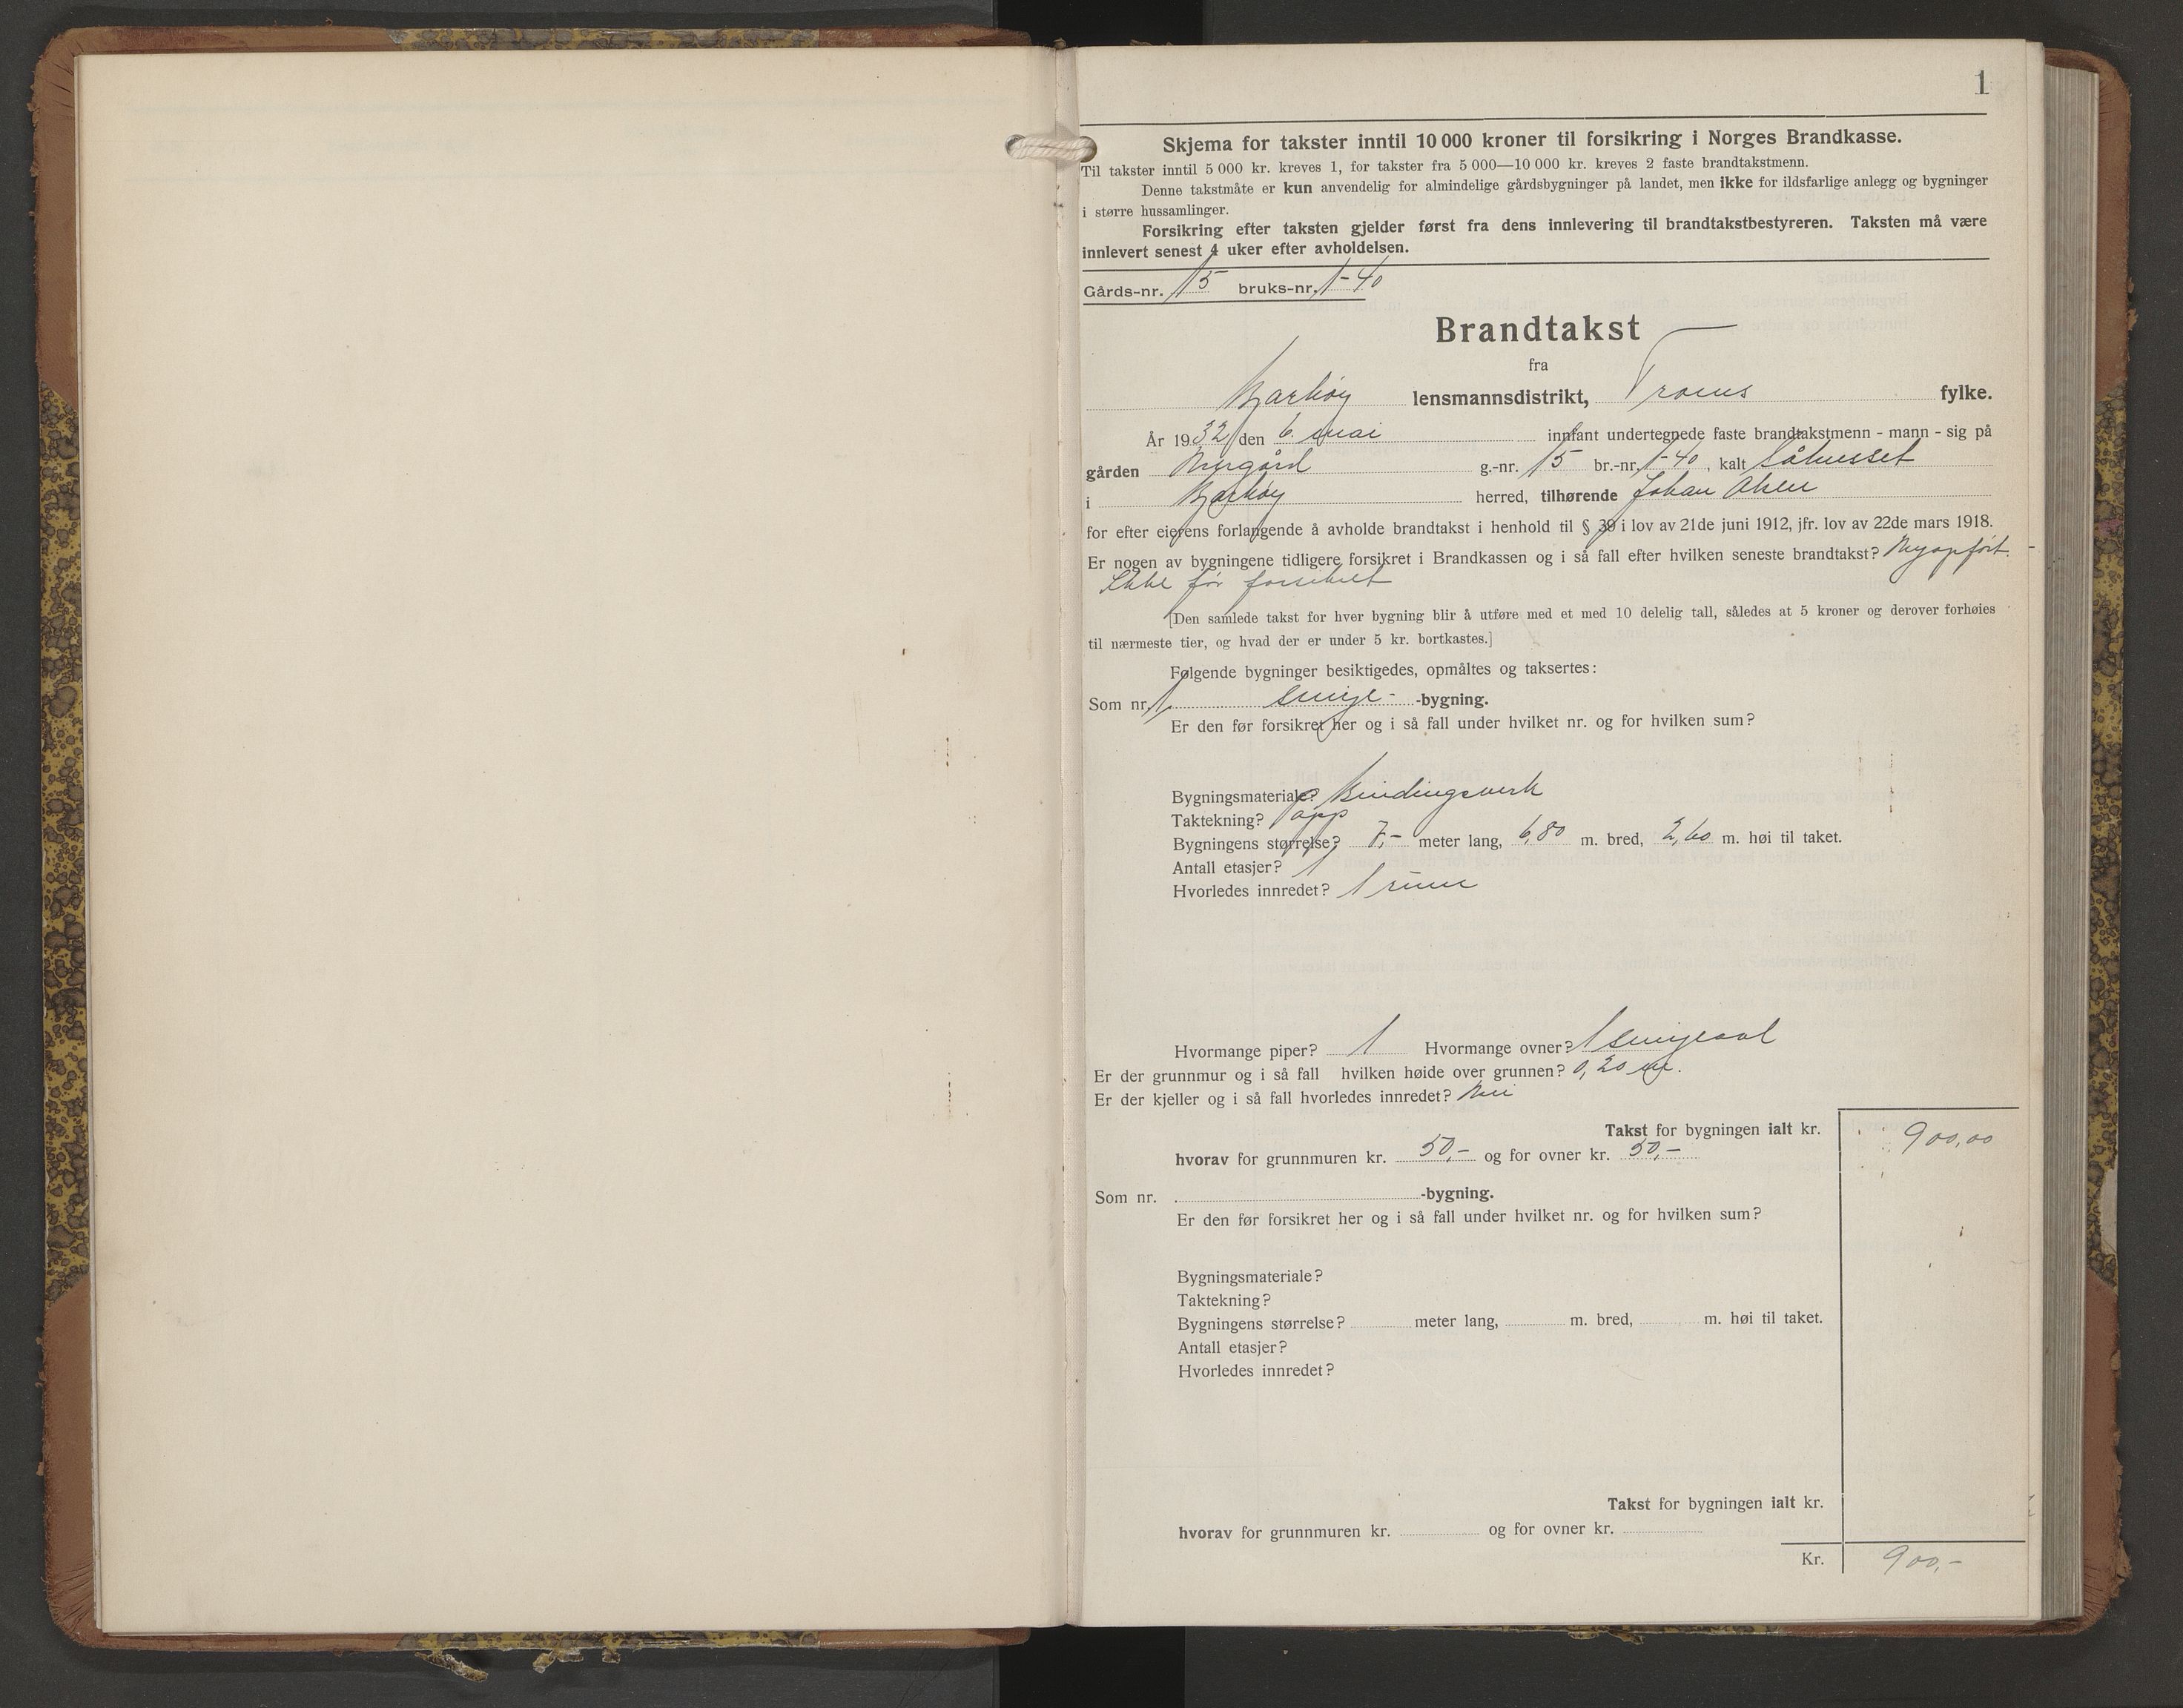 1
Skjema for takster inntil 10 000 kroner til forsikring i Norges Brandkasse.
Til takster inntil 5 000 kr. kreves 1, for takster fra 5 000—10 000 kr. kreves 2 faste brandtakstmenn.
Denne takstmåte er kun anvendelig for almindelige gårdsbygninger på landet, men ikke for ildsfarlige anlegg og bygninger
i større hussamlinger.
Forsikring efter taksten gjelder først fra dens innlevering til brandtakstbestyreren. Taksten må være
innlevert senest 4 uker efter avholdelsen.
Gårds-nr. 15 bruks-nr. 1-40
Brandtakst
fra
Bjarkøy lensmannsdistrikt, Troms fylke.
År 1932 den 6. mai innfant undertegnede faste brandtakstmenn - mann - sig på
gården Nergård g.-nr. 15 br.-nr. 1-40, kalt Låhusset
i Bjarkøy herred, tilhørende Johan Olsen
for efter eierens forlangende å avholde brandtakst i henhold til § 39 i lov av 21de juni 1912, jfr. lov av 22de mars 1918.
Er nogen av bygningene tidligere forsikret i Brandkassen og i så fall efter hvilken seneste brandtakst? Nyopført.
Ikke før forsikret
[Den samlede takst for hver bygning blir å utføre med et med 10 delelig tall, således at 5 kroner og derover forhøies
til nærmeste tier, og hvad der er under 5 kr. bortkastes.]
Følgende bygninger besiktigedes, opmåltes og taksertes:
Som nr. 1. smije- -bygning.
Er den før forsikret her og i så fall under hvilket nr. og for hvilken sum?
Bygningsmateriale? Bindingsverk
Taktekning? Papp
Bygningens størrelse? 7,- meter lang, 6,80 m. bred, 2,60 m. høi til taket.
Antall etasjer? 1
Hvorledes innredet? 1 rum
Hvormange piper? 1 Hvormange ovner? 1 smijeavl
Er der grunnmur og i så fall hvilken høide over grunnen? 0,20 m.
Er der kjeller og i så fall hvorledes innredet? Nei
Takst for bygningen ialt kr. 900,00
hvorav for grunnmuren kr. 50,- og for ovner kr. 50,-
Som nr. -bygning.
Er den før forsikret her og i så fall under hvilket nr. og for hvilken sum?
Bygningsmateriale?
Taktekning?
Bygningens størrelse? meter lang, m. bred, m. høi til taket.
Antall etasjer?
Hvorledes innredet?
Takst for bygningen ialt kr.
hvorav for grunnmuren kr. og for ovner kr.
Kr. 900,-